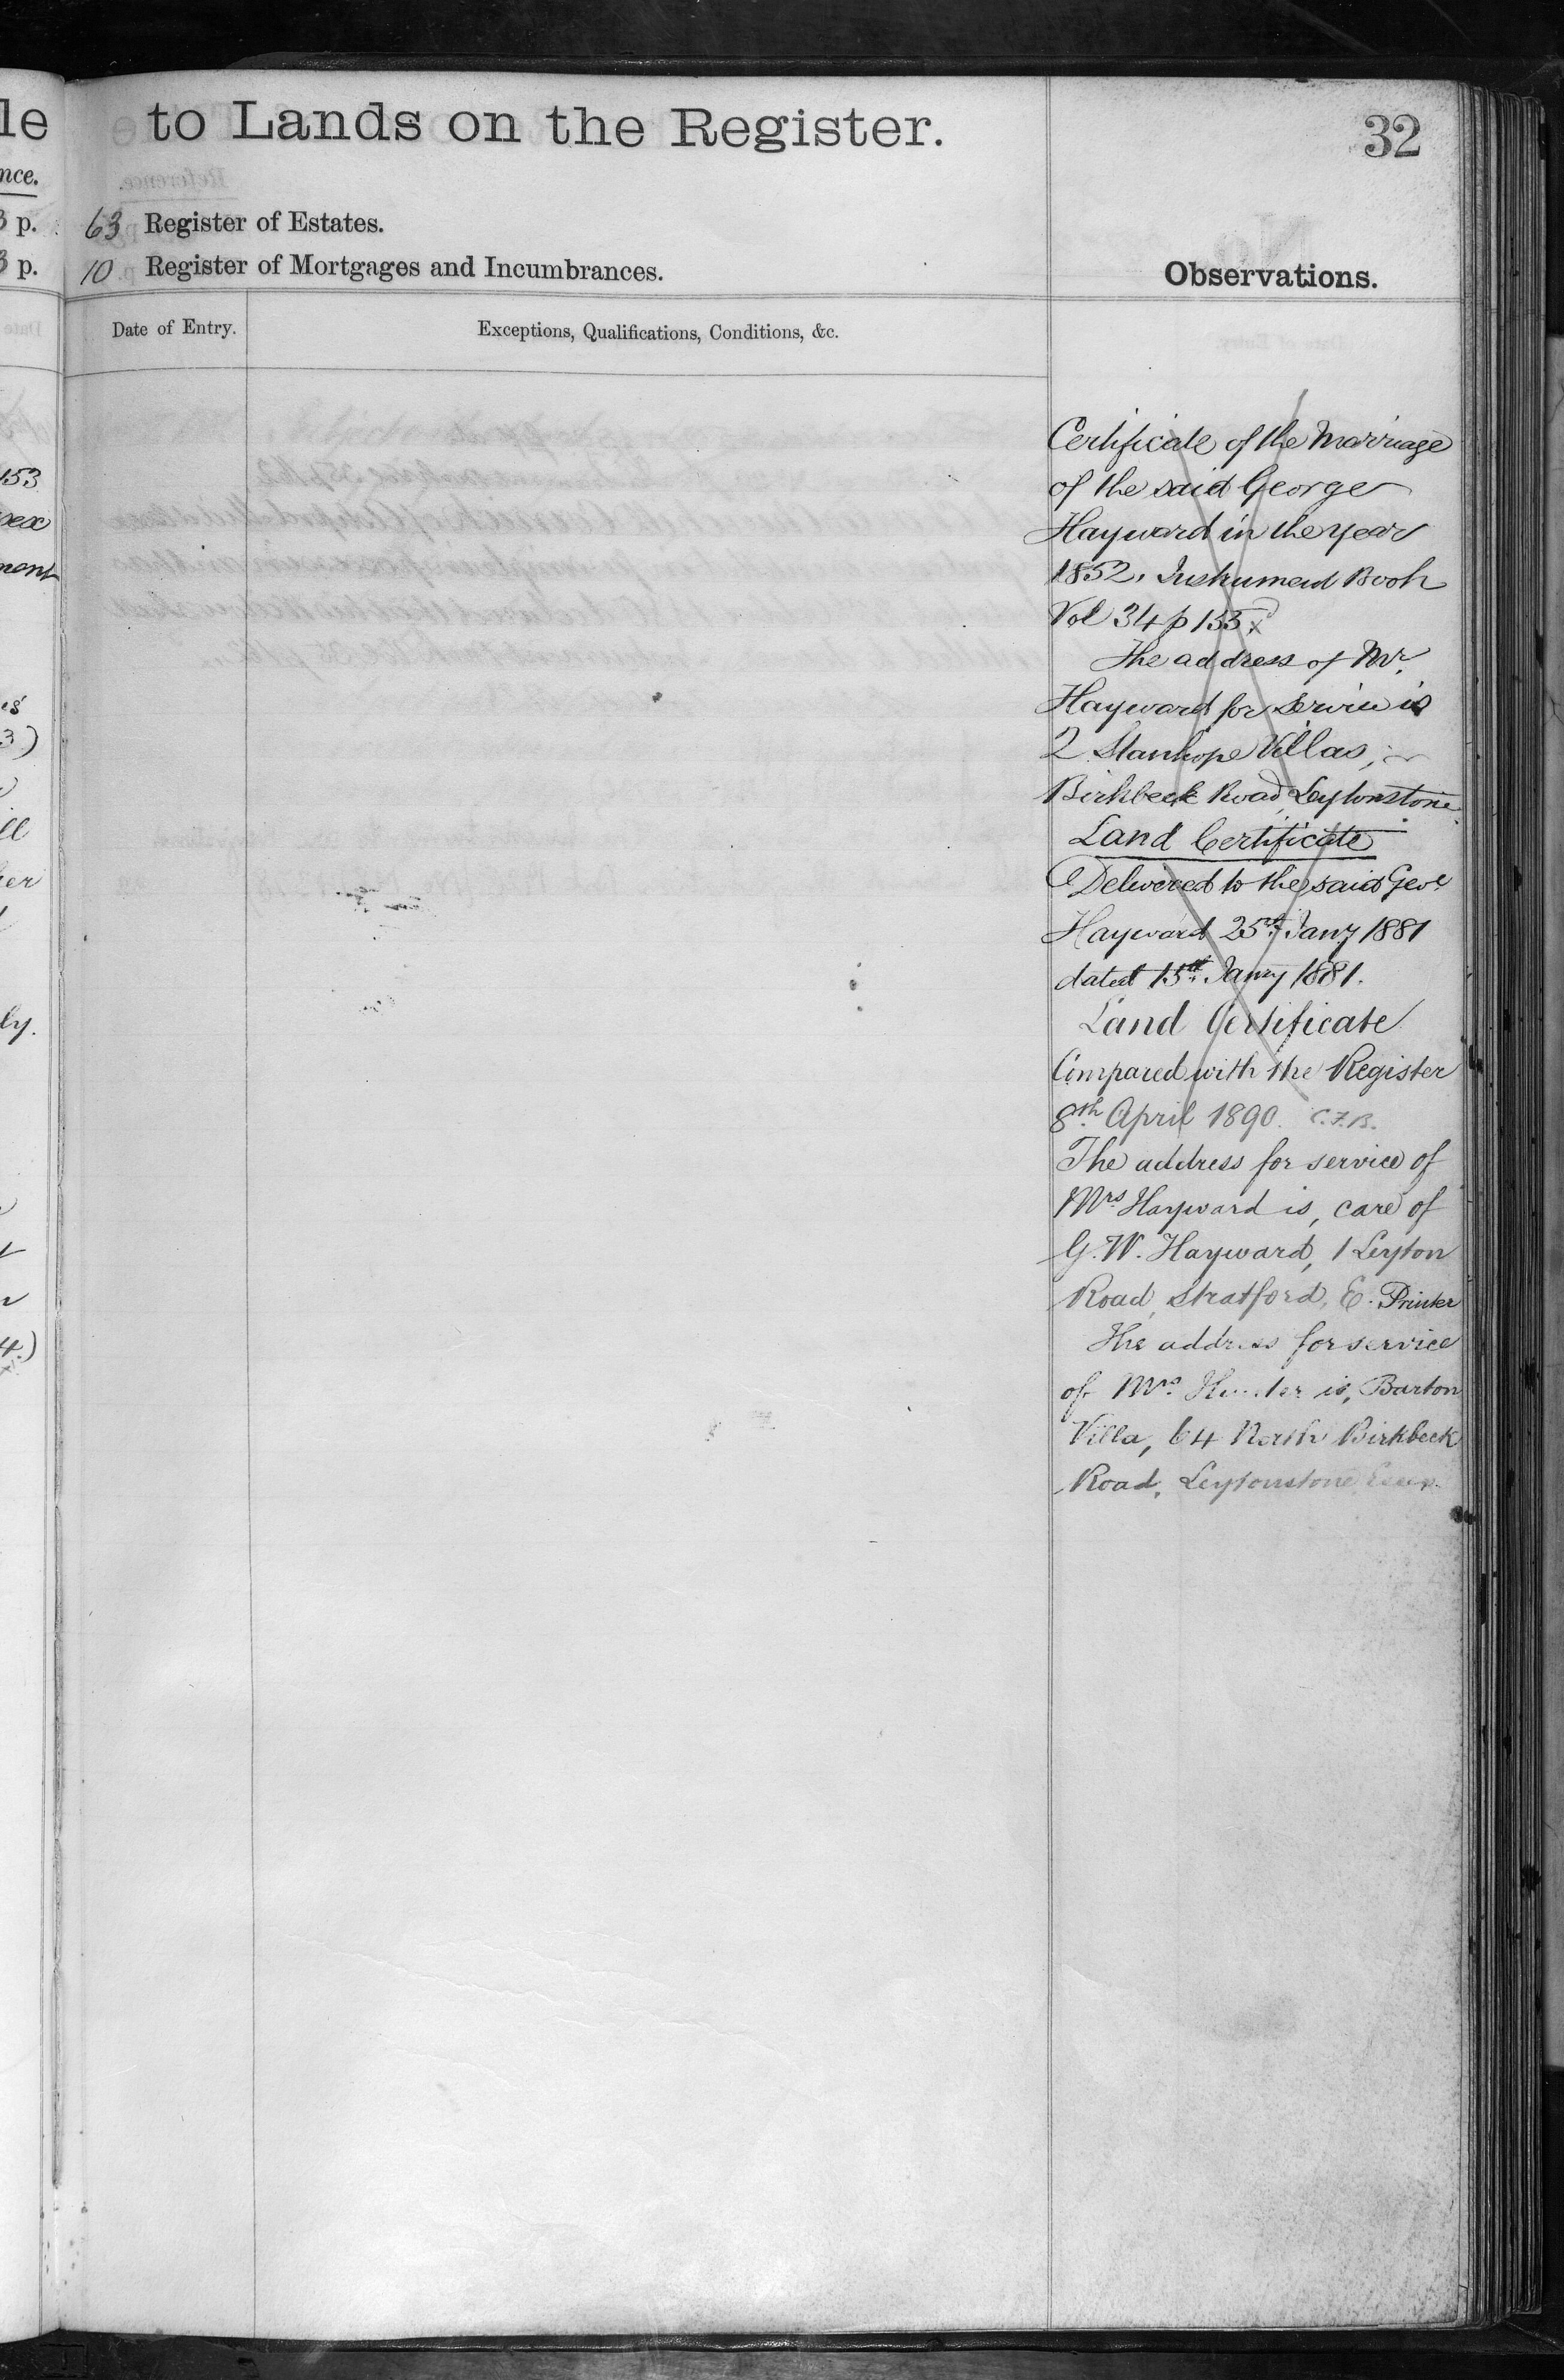 le to Lands on the Register.
32
nce.
3 p. 63 Register of Estates.
3 p. 10 Register of Mortgages and Incumbrances.
Observations.
Date of Entry.
Exceptions, Qualifications, Conditions, &c.
153
sex
ment
3)
ll
her
ly.
4.)
Certificate of the Marriage
of the said George
Hayward in the year
1852. Instrument Book
Vol 34 p 155
The address of Mr.
Hayward for service is
2 Stanhope Villas,
Birkbeck Road, Leytonstone.
Land Certificate
Delivered to the said Geoe
Hayward 25th Jany 1881
dated 15th Jany 1881.
Land Certificate
Compared with the Register
8th April 1890. C.F.B.
The address for service of
Mrs Hayward is, care of
G. W. Hayward, 1 Leyton
Road, Stratford, E. Printer
The address for service
of Mrs. Hunter is, Barton
Villa, 64 North Birkbeck
Road, Leytonstone Essex.